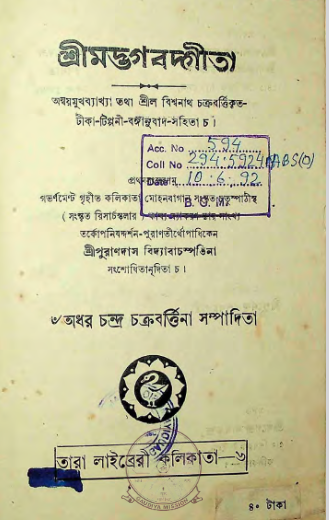 শ্রীমদ্ভগবদ্গীতা
অন্বয়মুখব্যাখ্যা তথা শ্রীল বিশ্বনাথ চক্রবর্ত্তিকৃত-
টীকা-টিপ্পনী-বঙ্গানুবাদ-সহিতা চ।
Acc. No 594
Coll No 294.5924
Date 10.6.92
গভর্ণমেন্ট গৃহীত কলিকাতা মোহনবাগান সংস্কৃত
( সংস্কৃত রিসার্চস্কলার )
তর্কোপনিষদ্দর্শন-পুরাণতীর্থোপাধিকেন
শ্রীপুরাণদাস বিদ্যাবাচস্পতিনা
সংশোধিতানূদিতা চ।
৺অধর চন্দ্র চক্রবর্ত্তিনা সম্পাদিতা
তারা লাইব্রেরী কলিকাতা—৬
GAUDIYA MISSION
৪০ টাকা